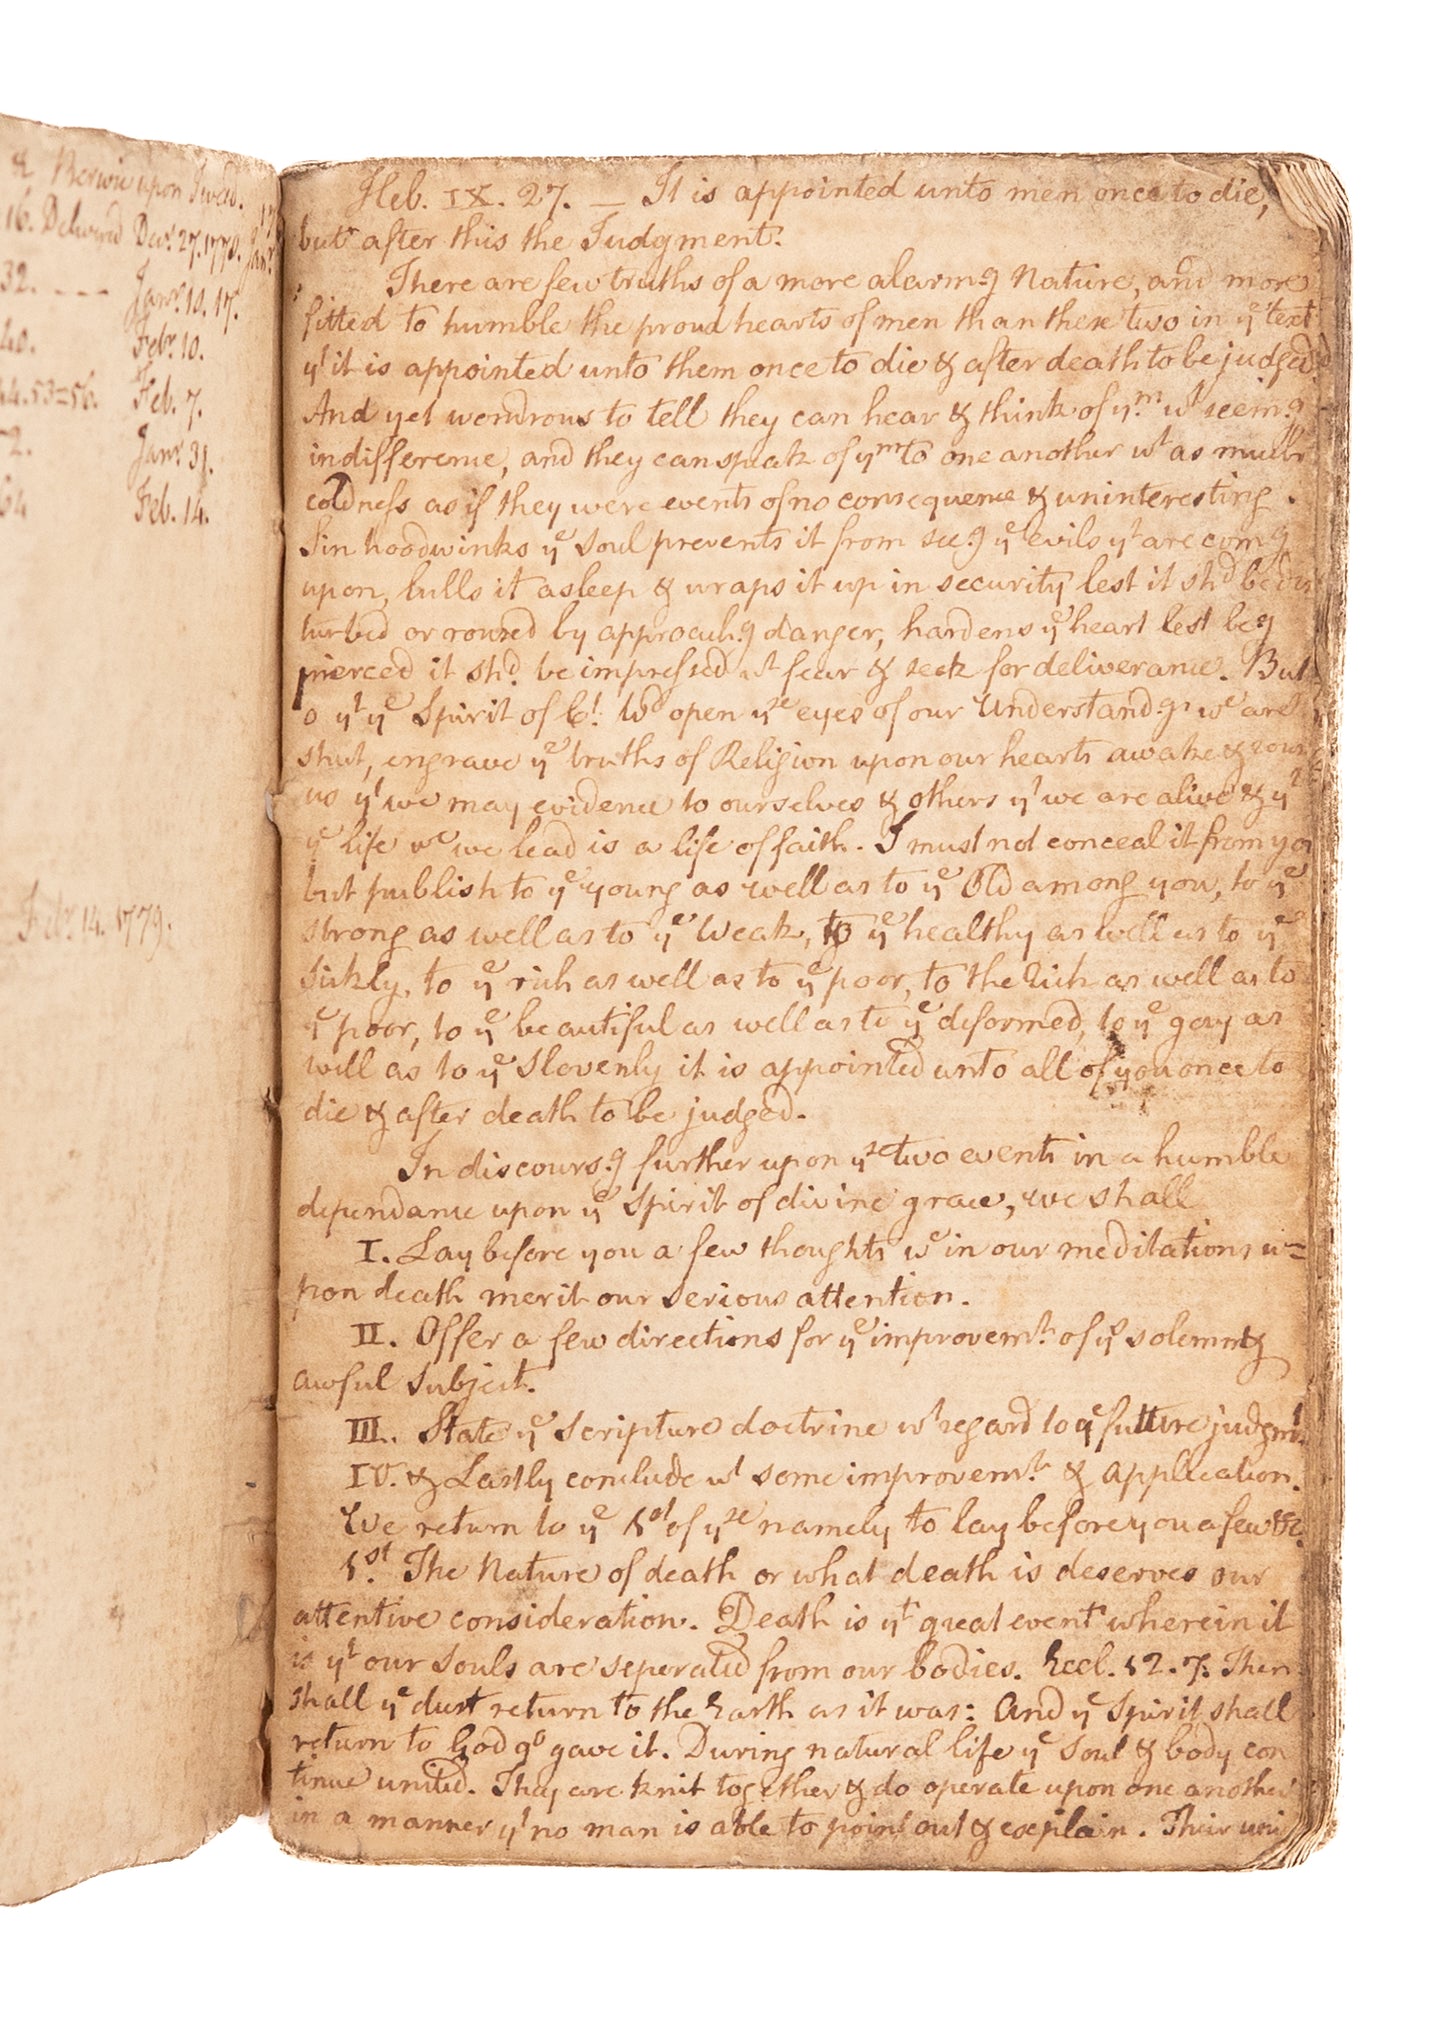 & Berwic upon Tweed.
16. Delivered Decr. 27. 1778.
32. - - - Janr. 10. 17.
40. Febr. 10.
44. 53=56. Feb. 7.
72. Janr. 31.
64 Feb. 14.
Febr. 14. 1779.
Heb. IX. 27. — It is appointed unto men once to die,
but after this the Judgment.
There are few truths of a more alarm.g Nature, and more
fitted to humble the proud hearts of men than these two in ye text
yt it is appointed unto them once to die & after death to be judged.
And yet wondrous to tell they can hear & think of ym wt seem.g
indifference, and they can speak of ym to one another wt as much
coldness as if they were events of no consequence & uninteresting.
Sin hoodwinks ye soul prevents it from see.g ye evils yt are com.g
upon, lulls it asleep & wraps it up in security lest it shd be dis
turbed or roused by approach.g danger, hardens ye heart lest be.g
pierced it shd. be impressed wt fear & seek for deliverance. But
o yt ye Spirit of Ct. wd open yse eyes of our Understand.g wc are
shut, engrave ye truths of Religion upon our hearts awake & rouse
us yt we may evidence to ourselves & others yt we are alive & yt
ye life wc we lead is a life of faith. I must not conceal it from you
but publish to ye young as well as to ye Old among you, to ye
strong as well as to ye Weak, to ye healthy as well as to ye
sickly, to ye rich as well as to ye poor, to the rich as well as to
ye poor, to ye beautiful as well as to ye deformed, to ye gay as
well as to ye slovenly it is appointed unto all of you once to
die & after death to be judged.
In discours.g further upon yse two events in a humble
dependance upon ye Spirit of divine grace, we shall
I. Lay before you a few thoughts wc in our meditations u=
pon death merit our serious attention.
II. Offer a few directions for ye improvemt. of ys solemn &
awful subject.
III. State ye scripture doctrine wt regard to ye future judgmt.
IV. & Lastly conclude wt some improvemt. & application.
We return to ye 1st of yse namely to lay before you a few &c.
1st. The Nature of death or what death is deserves our
attentive consideration. Death is yt great event wherein it
is yt our souls are seperated from our bodies. Eccl. 12. 7. Then
shall ye dust return to the Earth as it was: and ye Spirit shall
return to God qo gave it. During natural life ye soul & body con
tinue united. They are knit together & do operate upon one another
in a manner yt no man is able to point out & explain. Their uni